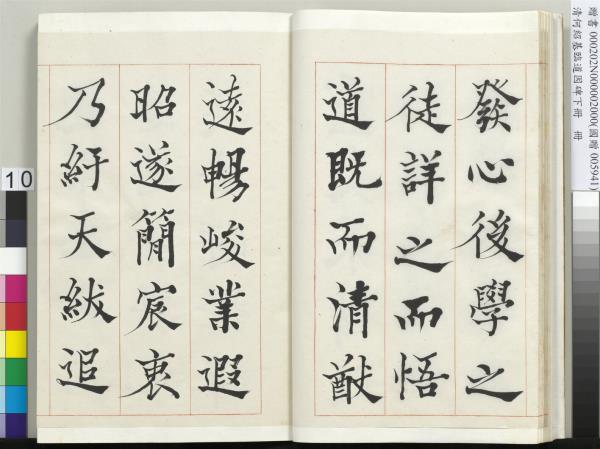 發心後學之
徒詳之而悟
道既而清猷
遠暢峻業遐
昭遂簡宸衷
乃紆天紱追
贈書 000202N000002000(國贈 005941)
清何紹基臨道因碑下冊 冊
10